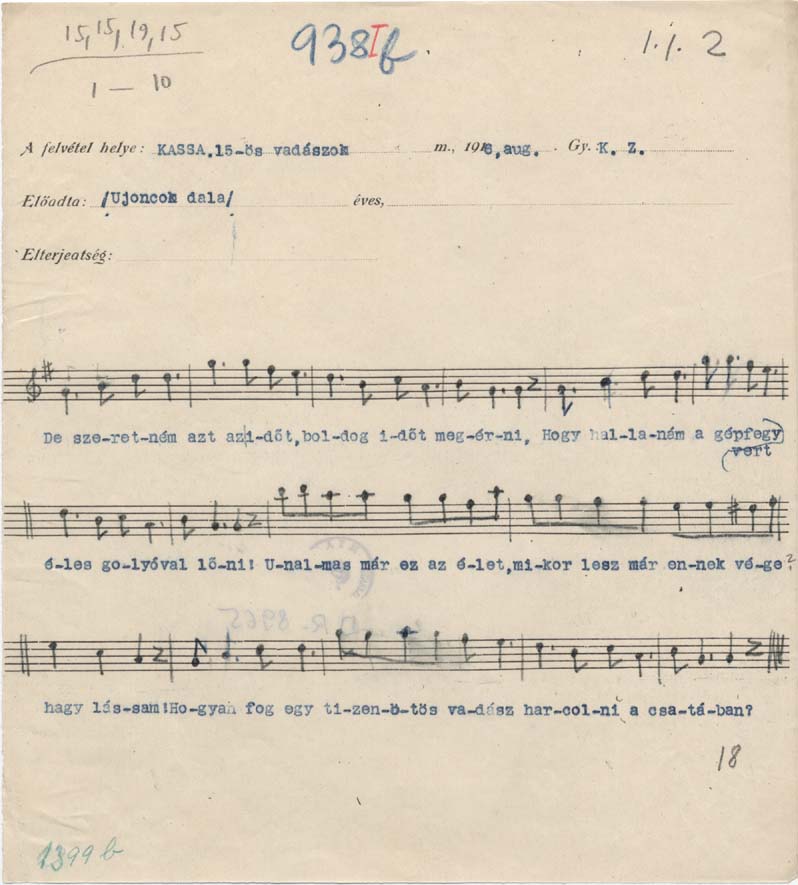 15, 15, 19, 15
938 I b.
1.1. 2
1 — 10
A felvétel helye: KASSA, 15-ös vadászok m., 1916, aug. Gy. K. Z.
Előadta: /Ujoncok dala/ éves,
Elterjedtség:
De sze-ret-ném azt az i-dőt, bol-dog i-dőt meg-ér-ni, Hogy hal-la-nám a gépfegy
vert
é-les go-lyóval lő-ni! U-nal-mas már ez az é-let, mi-kor lesz már en-nek vé-ge?
hagy lás-sam! Ho-gyan fog egy ti-zen-ö-tös va-dász har-col-ni a csa-tá-ban?
18
1399 b